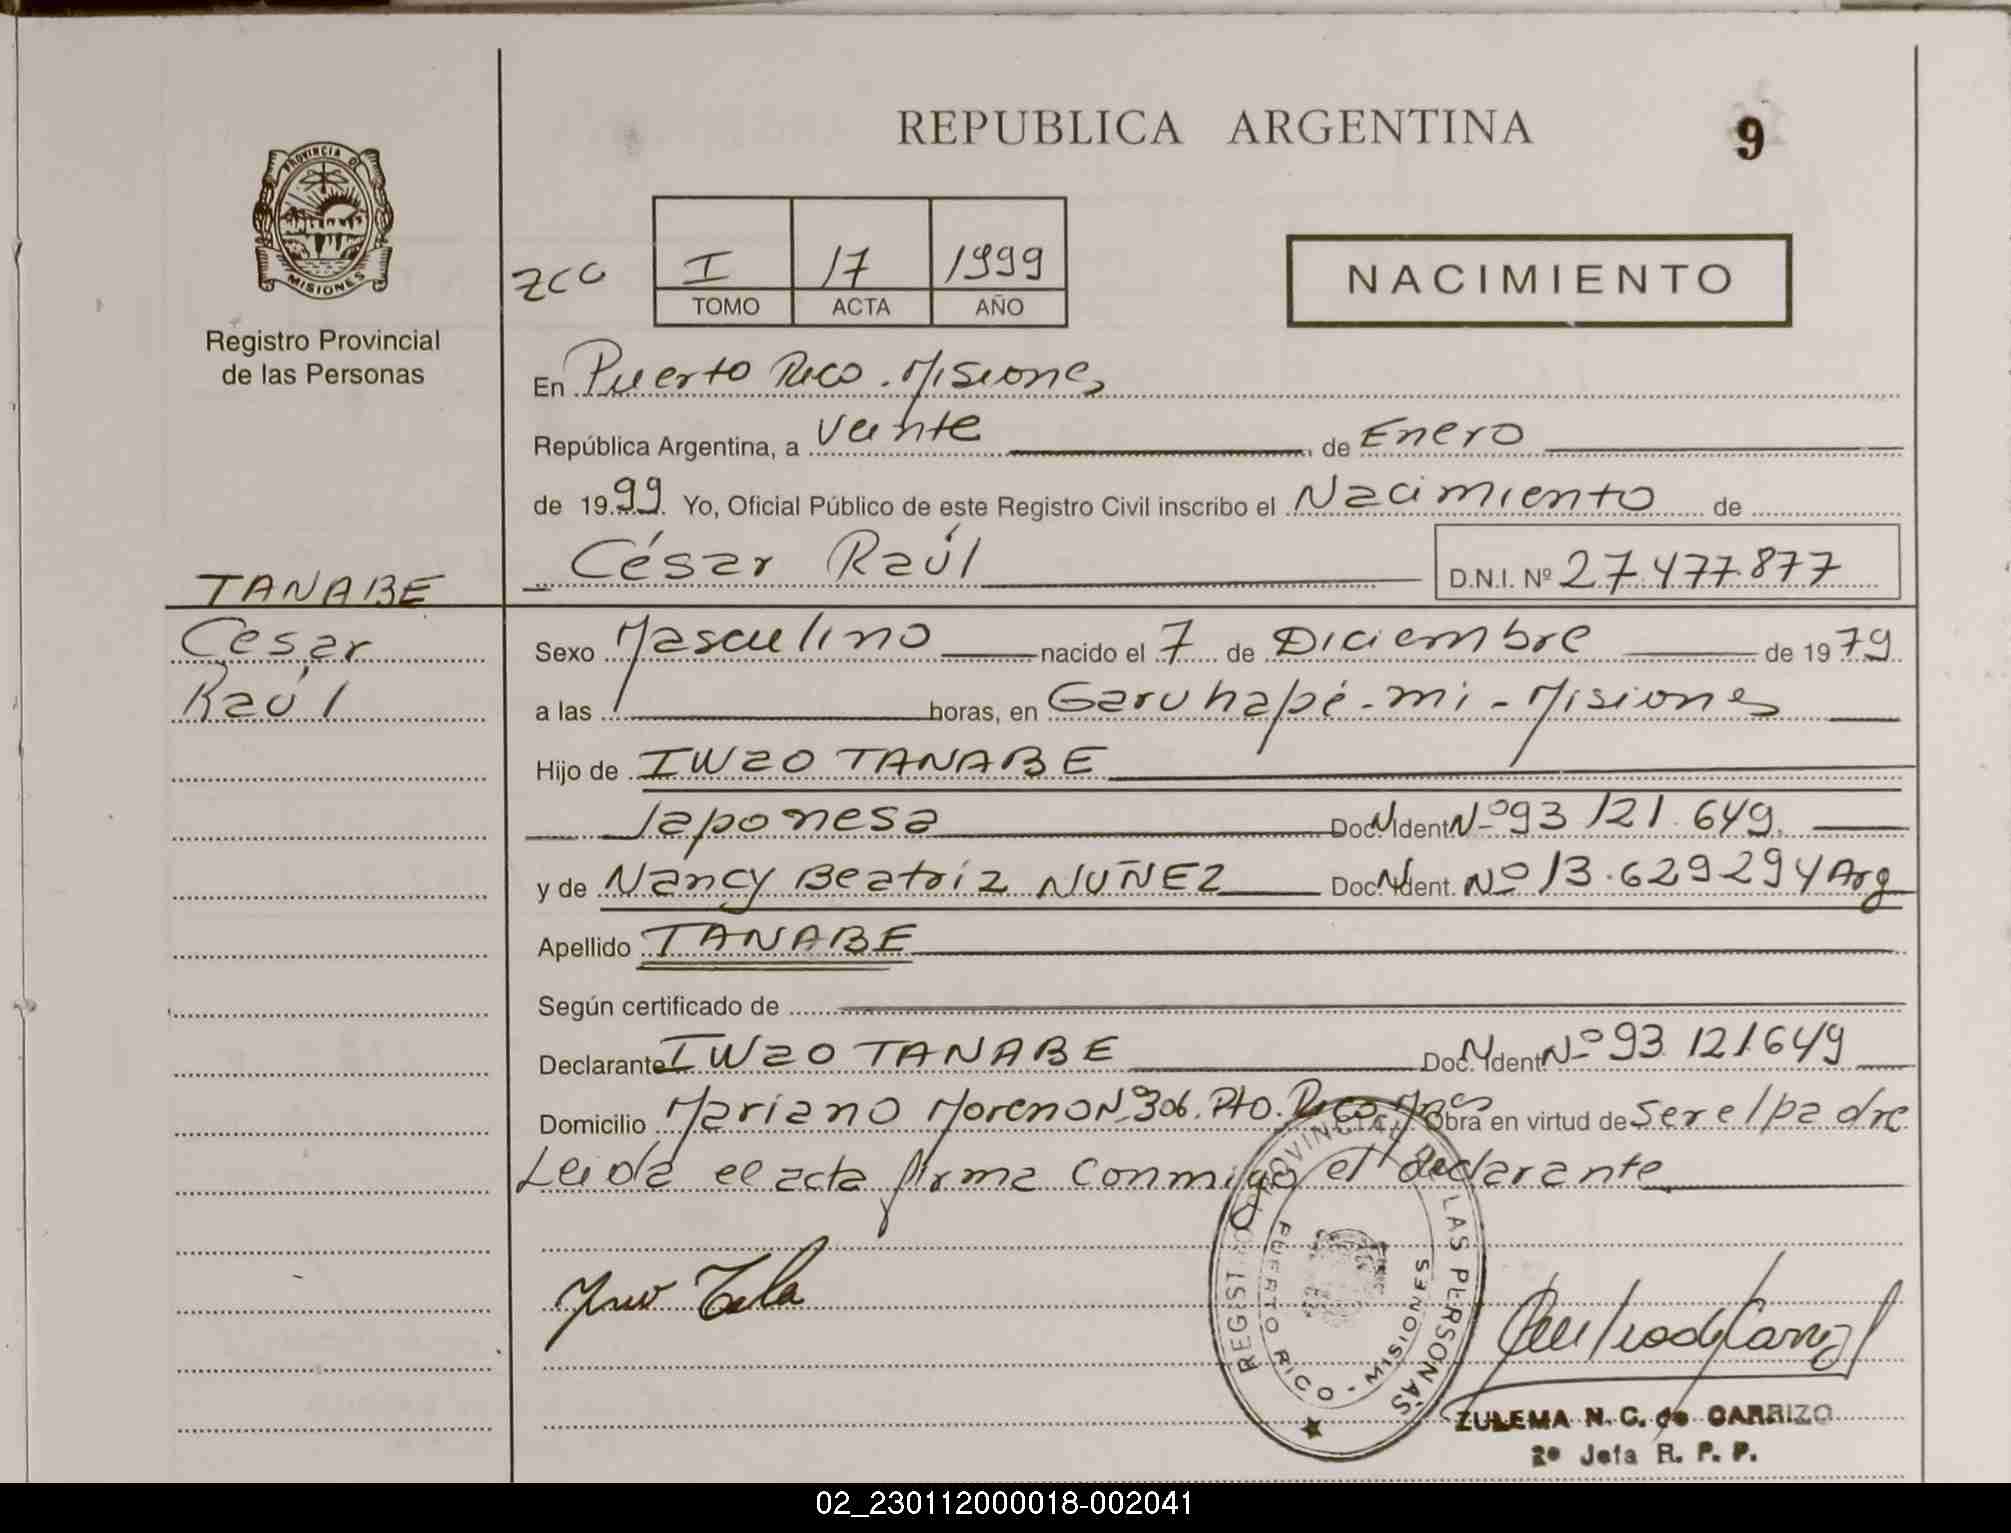 REPUBLICA ARGENTINA
9
PROVINCIA DE
MISIONES
Registro Provincial
de las Personas
I 17 1999
TOMO ACTA AÑO
NACIMIENTO
En Puerto Rico. Misiones
República Argentina, a Veinte de Enero
de 1999. Yo, Oficial Público de este Registro Civil inscribo el Nacimiento de
César Raúl D.N.I. Nº 27.477.877
TANABE
César
Raúl
Sexo Masculino nacido el 7 de Diciembre de 1979
a las horas, en Garuhapé-mi-Misiones
Hijo de IWAO TANABE
Japonesa Doc. N Ident Nº 93 121.649
y de Nancy Beatriz NUÑEZ Doc. N Ident. Nº 13.629294 Arg
Apellido TANABE
Según certificado de
Declarante IWAO TANABE Doc. N Ident Nº 93 121.649
Domicilio Mariano Moreno Nº 306. Pto. Rico Mnes Obra en virtud de ser el padre
Leida el acta firma conmigo el declarante
REGISTRO PROVINCIAL DE LAS PERSONAS
PUERTO RICO - MISIONES
ZULEMA N. C. de CARRIZO
2º Jefa R. P. P.
02_230112000018-002041